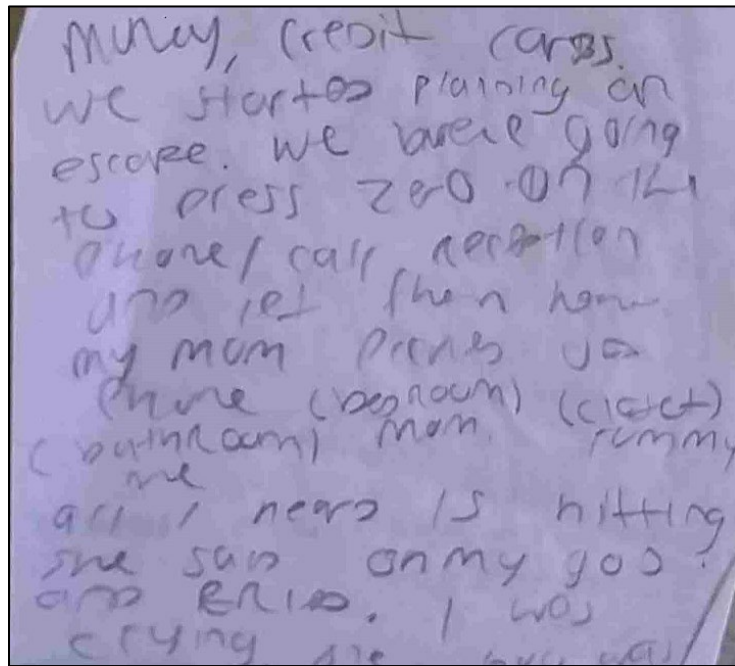 money, credit cards.
we started planning an
escape. we were going
to press zero on the
phone/call reception
and let them know
my mom picks up
phone (bedroom) (closet)
(bathroom) mom. tommy
me
all i heard is hitting
she said oh my god!
and . I was
crying